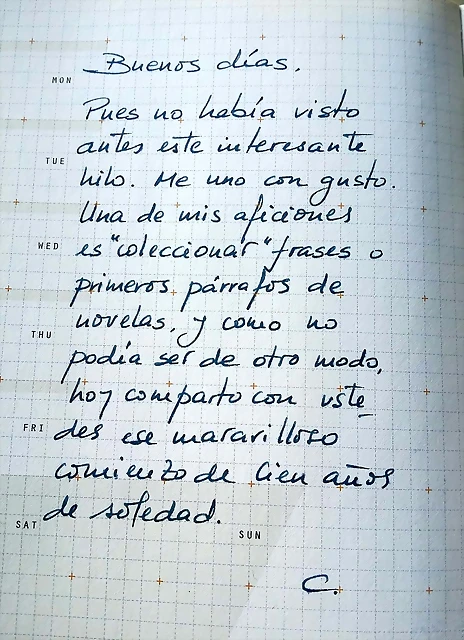 Buenos días.
MON
Pues no había visto
antes este interesante
TUE
hilo. Me uno con gusto.
Una de mis aficiones
WED
es "coleccionar" frases o
primeros párrafos de
novelas, y como no
THU
podía ser de otro modo,
hoy comparto con uste_
FRI
des ese maravilloso
comienzo de Cien años
de soledad.
SAT
SUN
C.